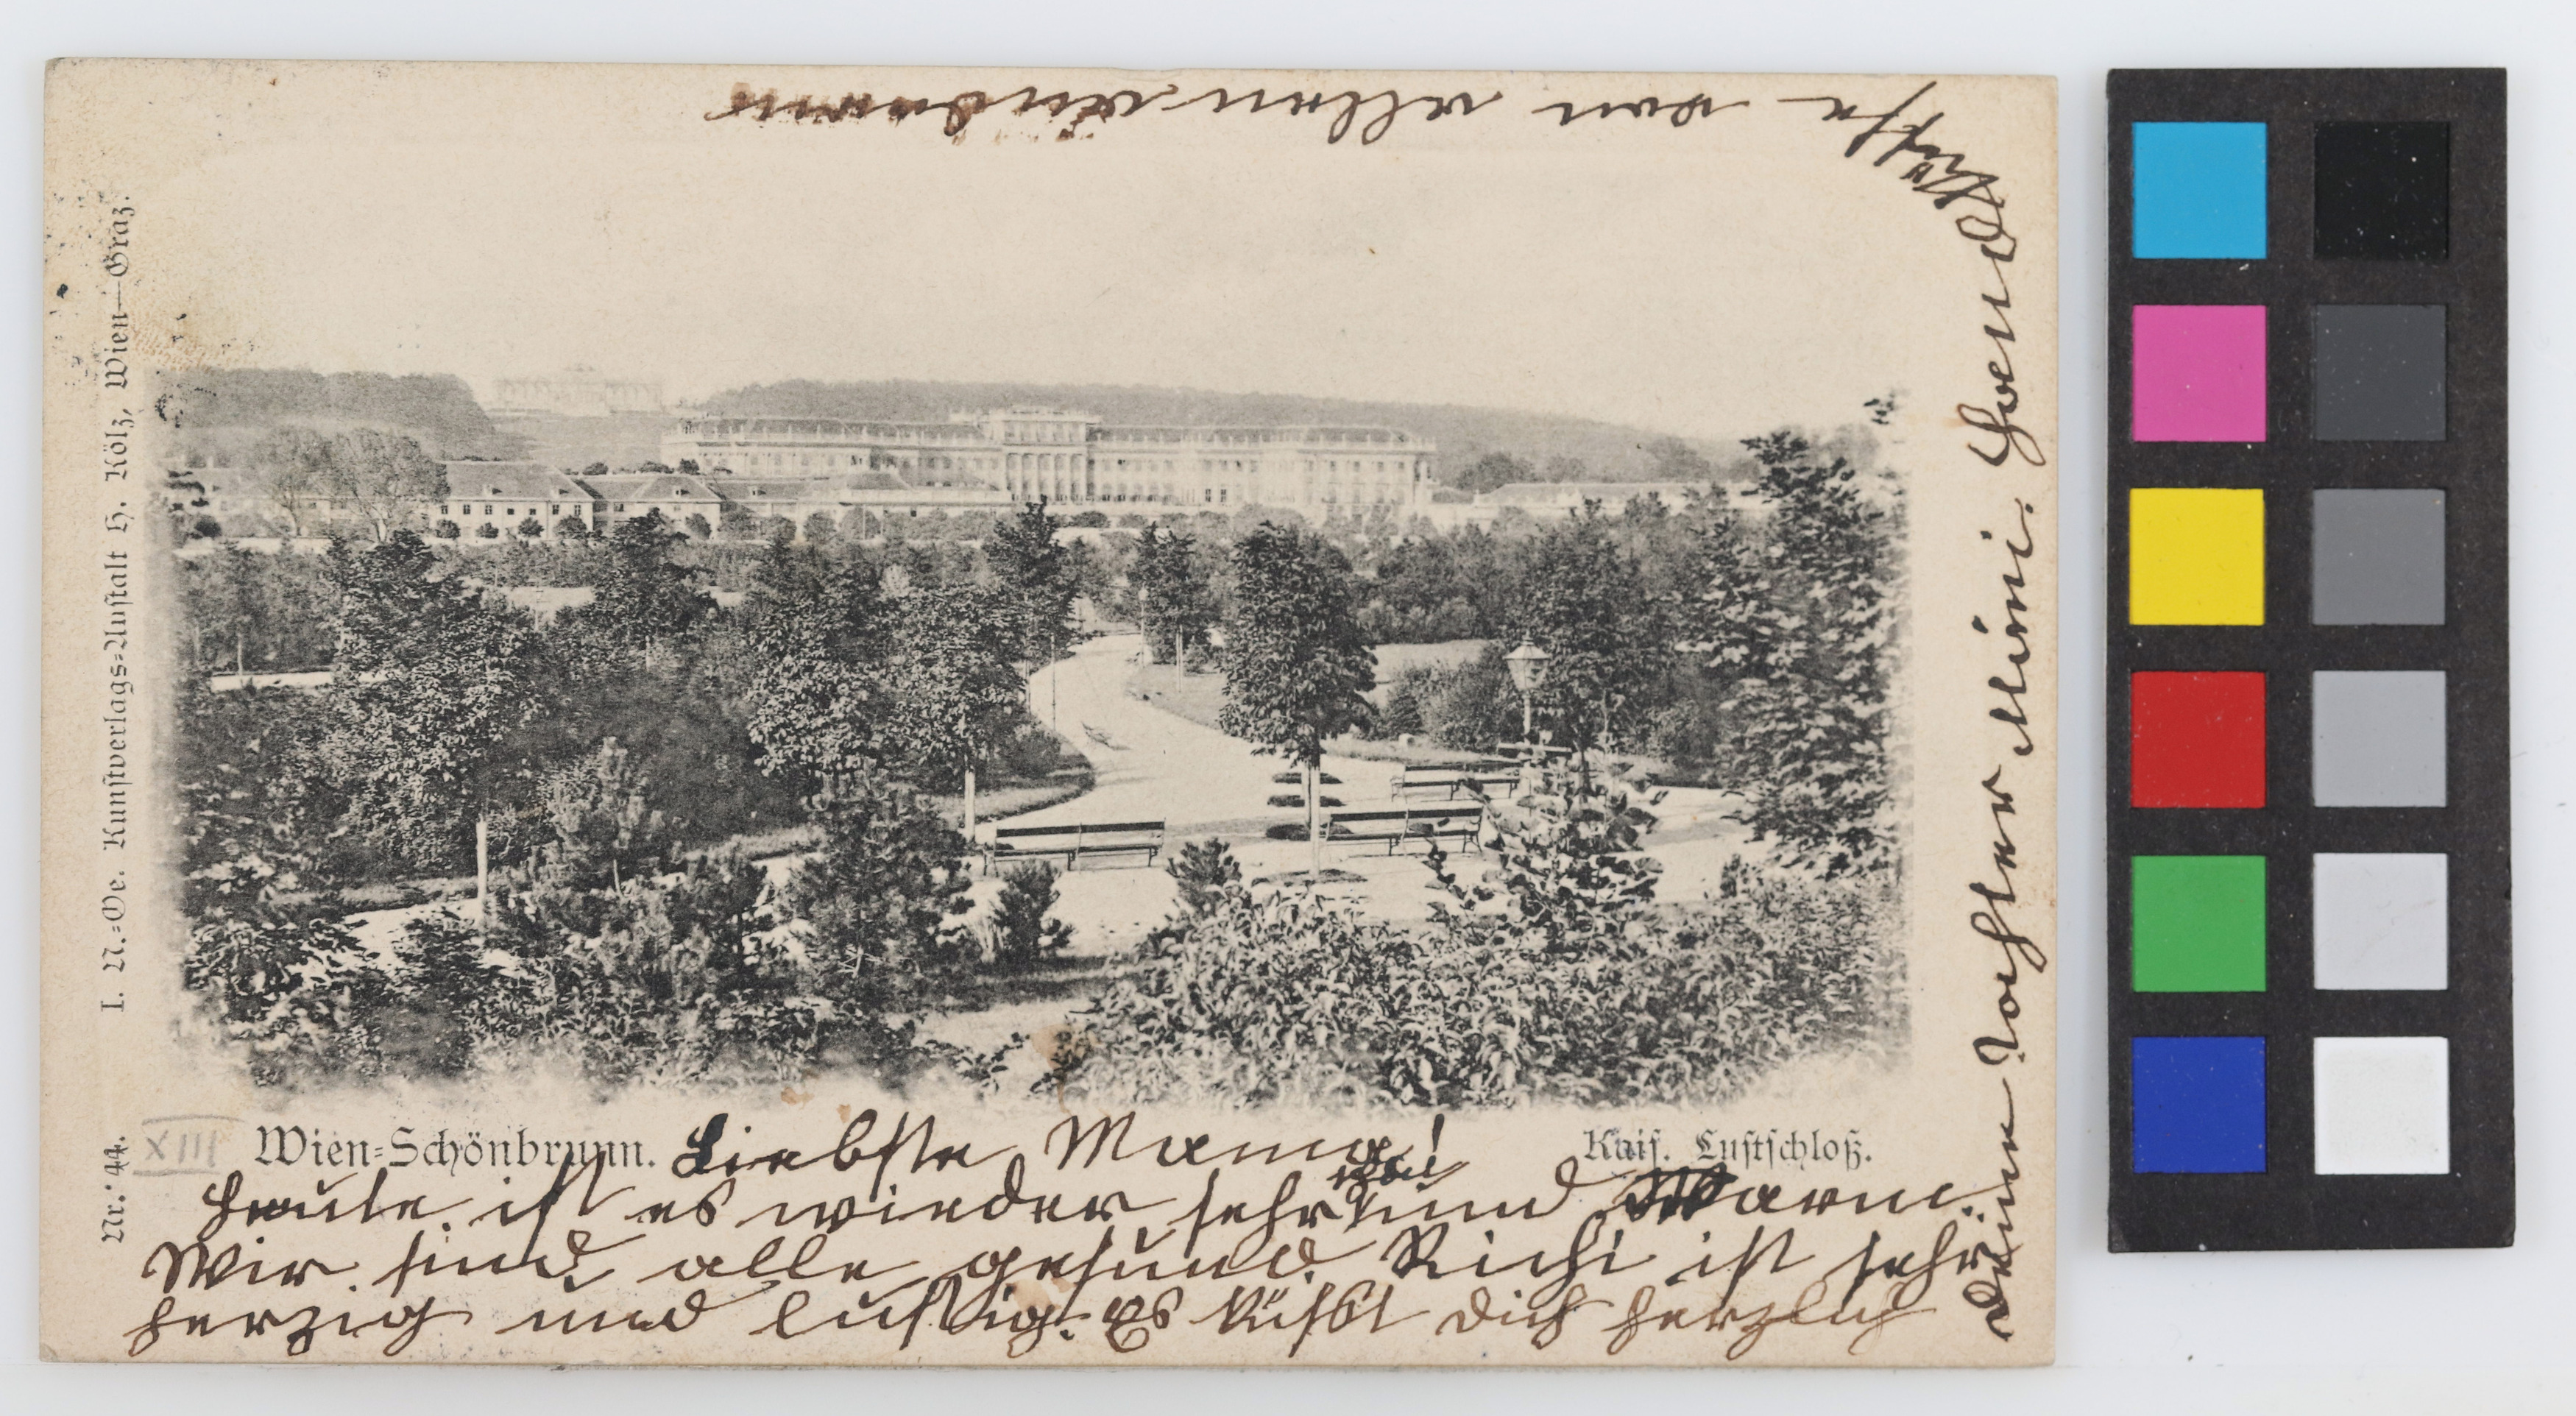 I. N.-Oe. Kunstverlags-Anstalt H. Kölz, Wien—Graz.
Nr. 44.
XIII
Wien-Schönbrunn.
Kais. Lustschloß.
Liebste Mama!
Heute ist es wieder sehr und Warm.
Wir sind alle gesund. Richi ist sehr
herzig und lustig. Es küsst Dich herzlich
Deine Tochter Mimi.
Küsse von allen anderen